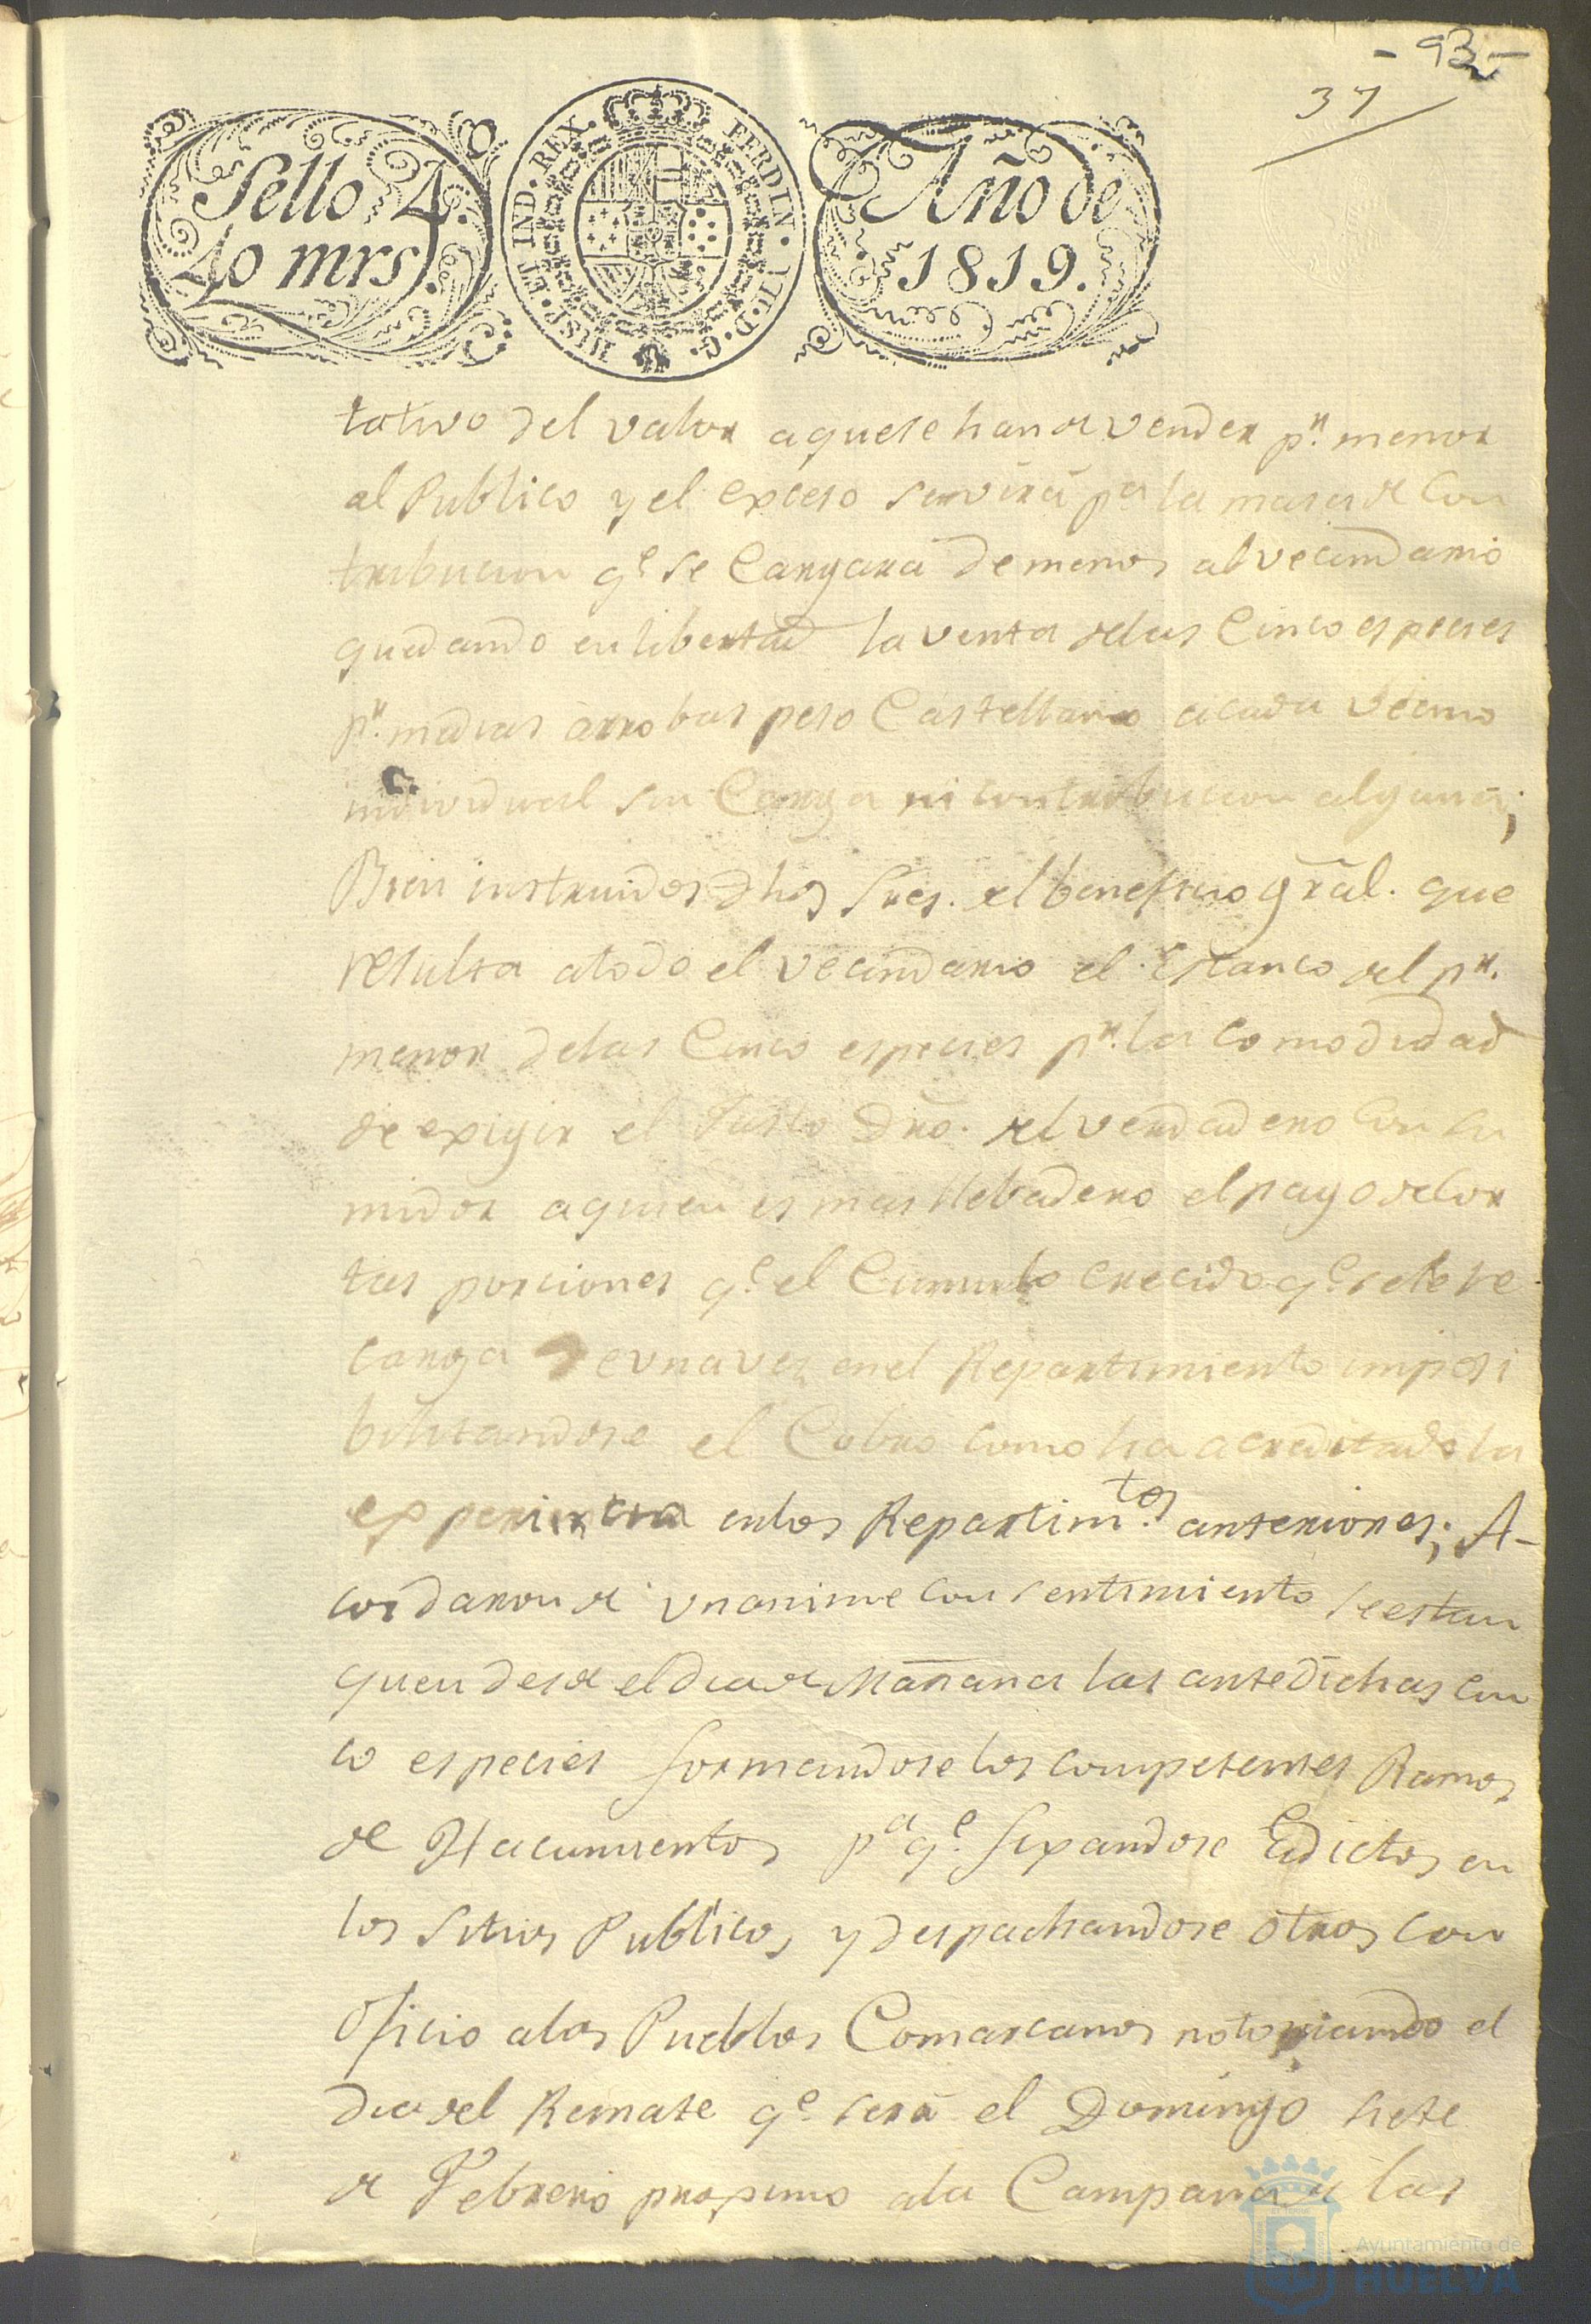 - 93 -
37
Sello 4.
40 mrs.
HISP. ET IND. REX.
FERDIN. VII. D. G.
Año de
1819.
tativo del valor aquese han de vender pr. menor
al Publico y el exceso servirá pa la masa de Con
tribucion qe. se Cargara de menos al vecindario
quedando en libertad la venta delas Cinco especies
pr. medias arrobas peso Castellano acada vecino
individual sin Carga ni contribucion alguna;
Bien instruidos dhos Sres. del beneficio gral. que
resulta atodo el vecindario el Estanco del pr.
menor delas Cinco especies pr. la comodidad
de exigir el Justo Dro. del verdadero Consu
midor aquien es mas llebadero el pago de Cor
tas porciones qe. el Cumulo crecido qe. sele re
carga de una vez en el Repartimiento imposi
bilitandose el Cobro como ha acreditado la
experiencia enlos Repartimtos. anteriores; A-
cordaron de unanime consentimiento se estan
quen desde el dia de Mañana las antedichas cin
co especies formandose los competentes Ramos
de Hacimientos pa qe. fixandose Edictos en
los Sitios Publicos y despachandose otros con
Oficio alos Pueblos Comarcanos notoriando el
dia del Remate qe. será el Domingo siete
de Febrero proximo ala Campana de las
Ayuntamiento de
HUELVA